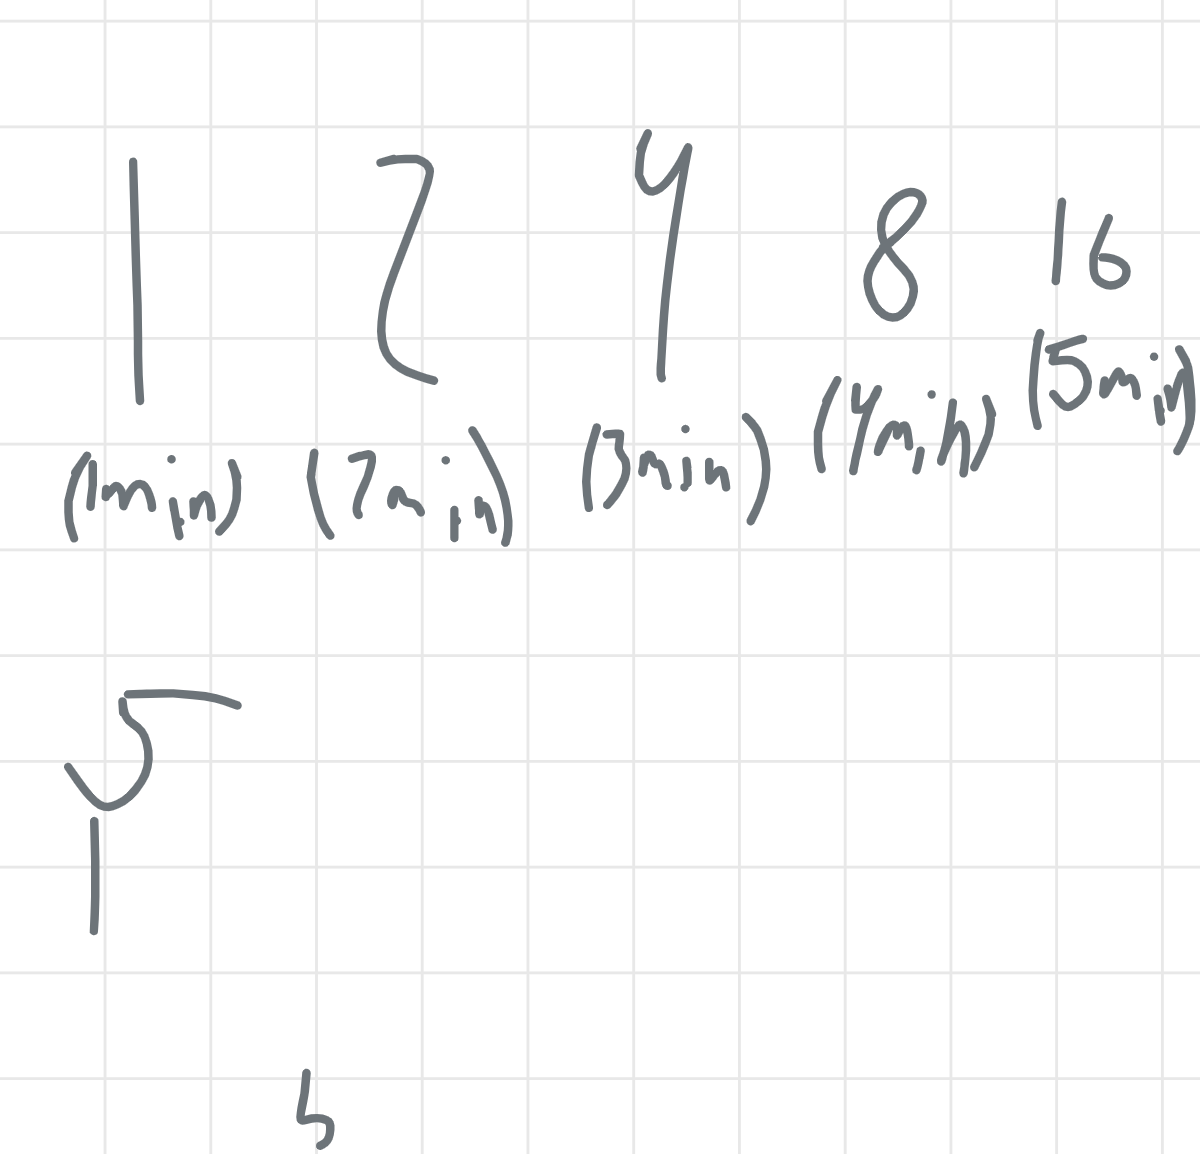 1 2 4 8 16
(1min) (2min) (3min) (4min) (5min)
5
1
5